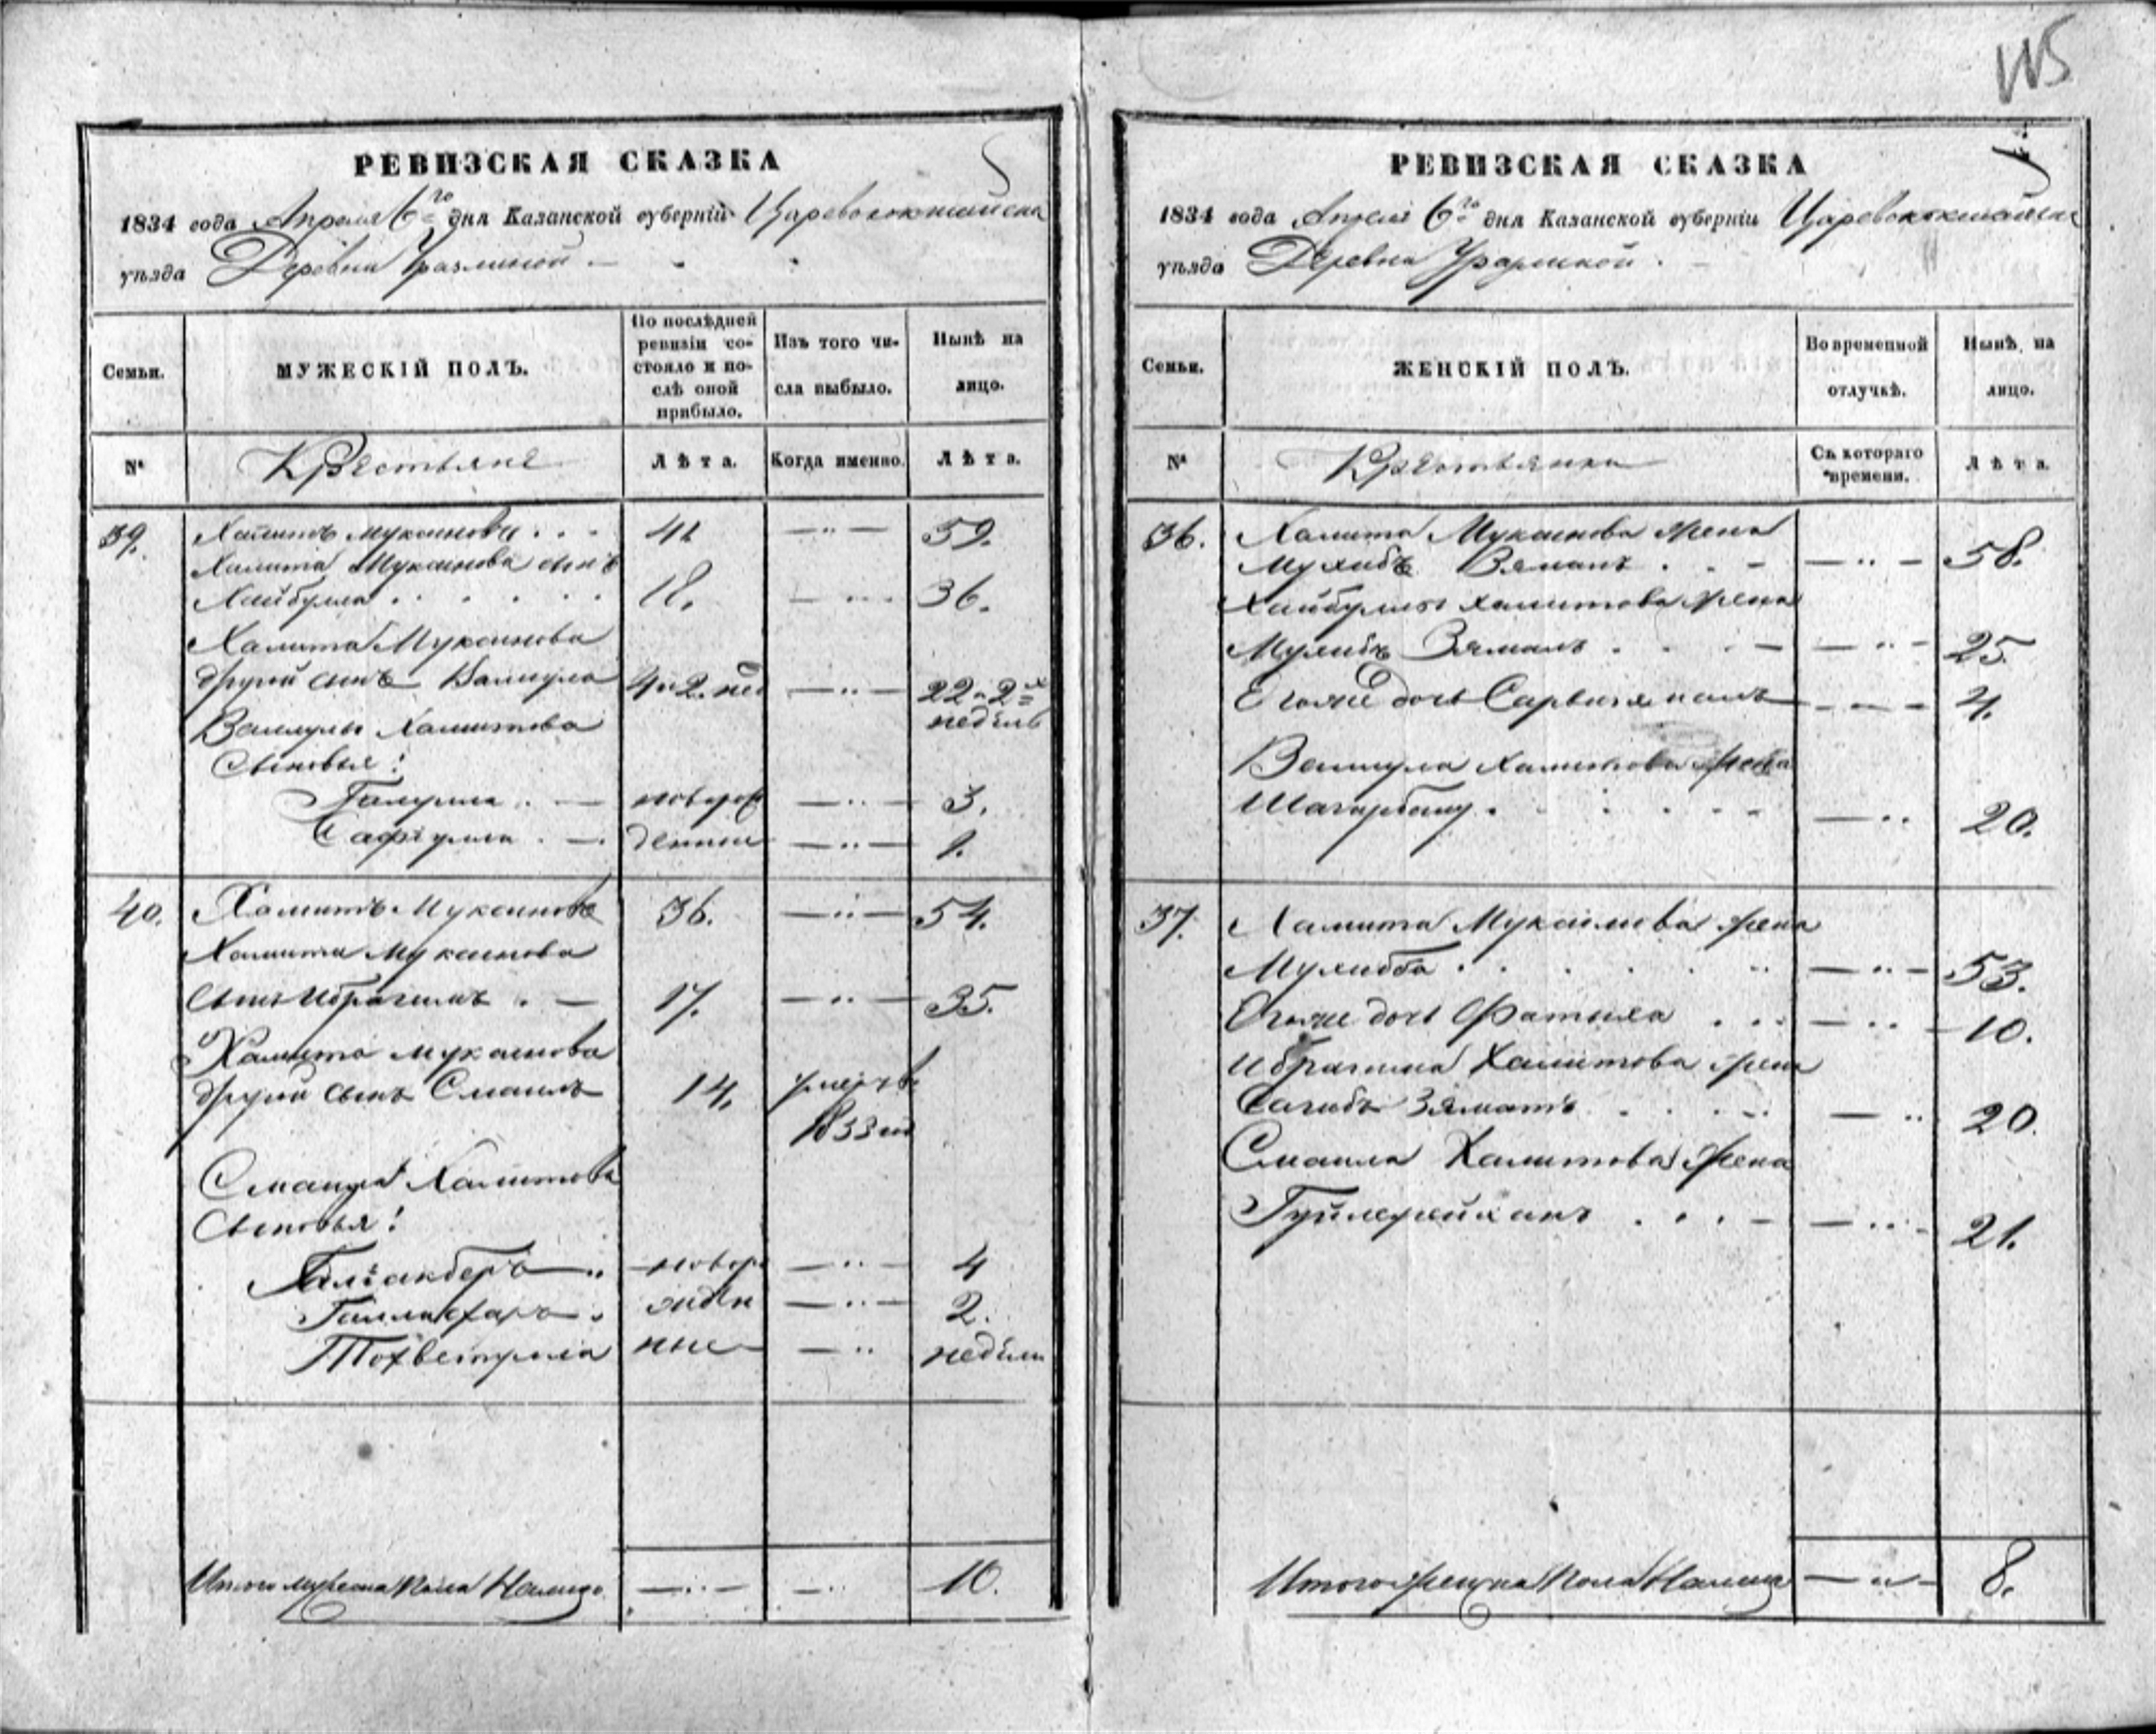 115
РЕВИЗСКАЯ СКАЗКА
1834 года Апреля 6го дня Казанской губерніи Царевококшайска
уѣзда Деревни Уразлиной
Семьи. МУЖЕСКІЙ ПОЛЪ. По послѣдней ревизіи состояло и послѣ оной прибыло. Изъ того числа выбыло. Нынѣ на лицо.
№ Крестьяне Лѣта. Когда именно. Лѣта.
39. Халитъ Мукминова 41 59.
Халита Мукминова сынъ
Хайбулла 18. 36.
Халита Мукминова
другой сынъ Валиулла 4 и 2. не 22 и 2х
Валиуллы Халитова недѣль
Сыновья:
Галиулла новорож 3.
Сафіулла денные 1.
40. Хамитъ Мукминовъ 36. 54.
Хамита Мукминова
Сынъ Ибрагимъ 17. 35.
Хамита Мукминова
другой сынъ Смаилъ 14. умерв
1833 го
Смаила Хамитова
Сыновья:
Галіакберъ новоро 4
жден 2.
ные недѣли
Итого мужеска пола на лицо 10.
РЕВИЗСКАЯ СКАЗКА
1834 года Апреля 6го дня Казанской губерніи Царевококшайска
уѣзда Деревни Уразлиной
Семьи. ЖЕНСКІЙ ПОЛЪ. Во временной отлучкѣ. Нынѣ на лицо.
№ Крестьянки Съ котораго времени. Лѣта.
36. Халита Мукминова жена
58.
Хайбуллы Халитова жена
25
Его же дочь 4.
Валиулла Халитова жена
20.
37. Хамита Мукминова жена
53.
Его же дочь Фатыха 10.
Ибрагима Хамитова жена
20.
Смаила Хамитова жена
21.
Итого женска пола на лицо 8.